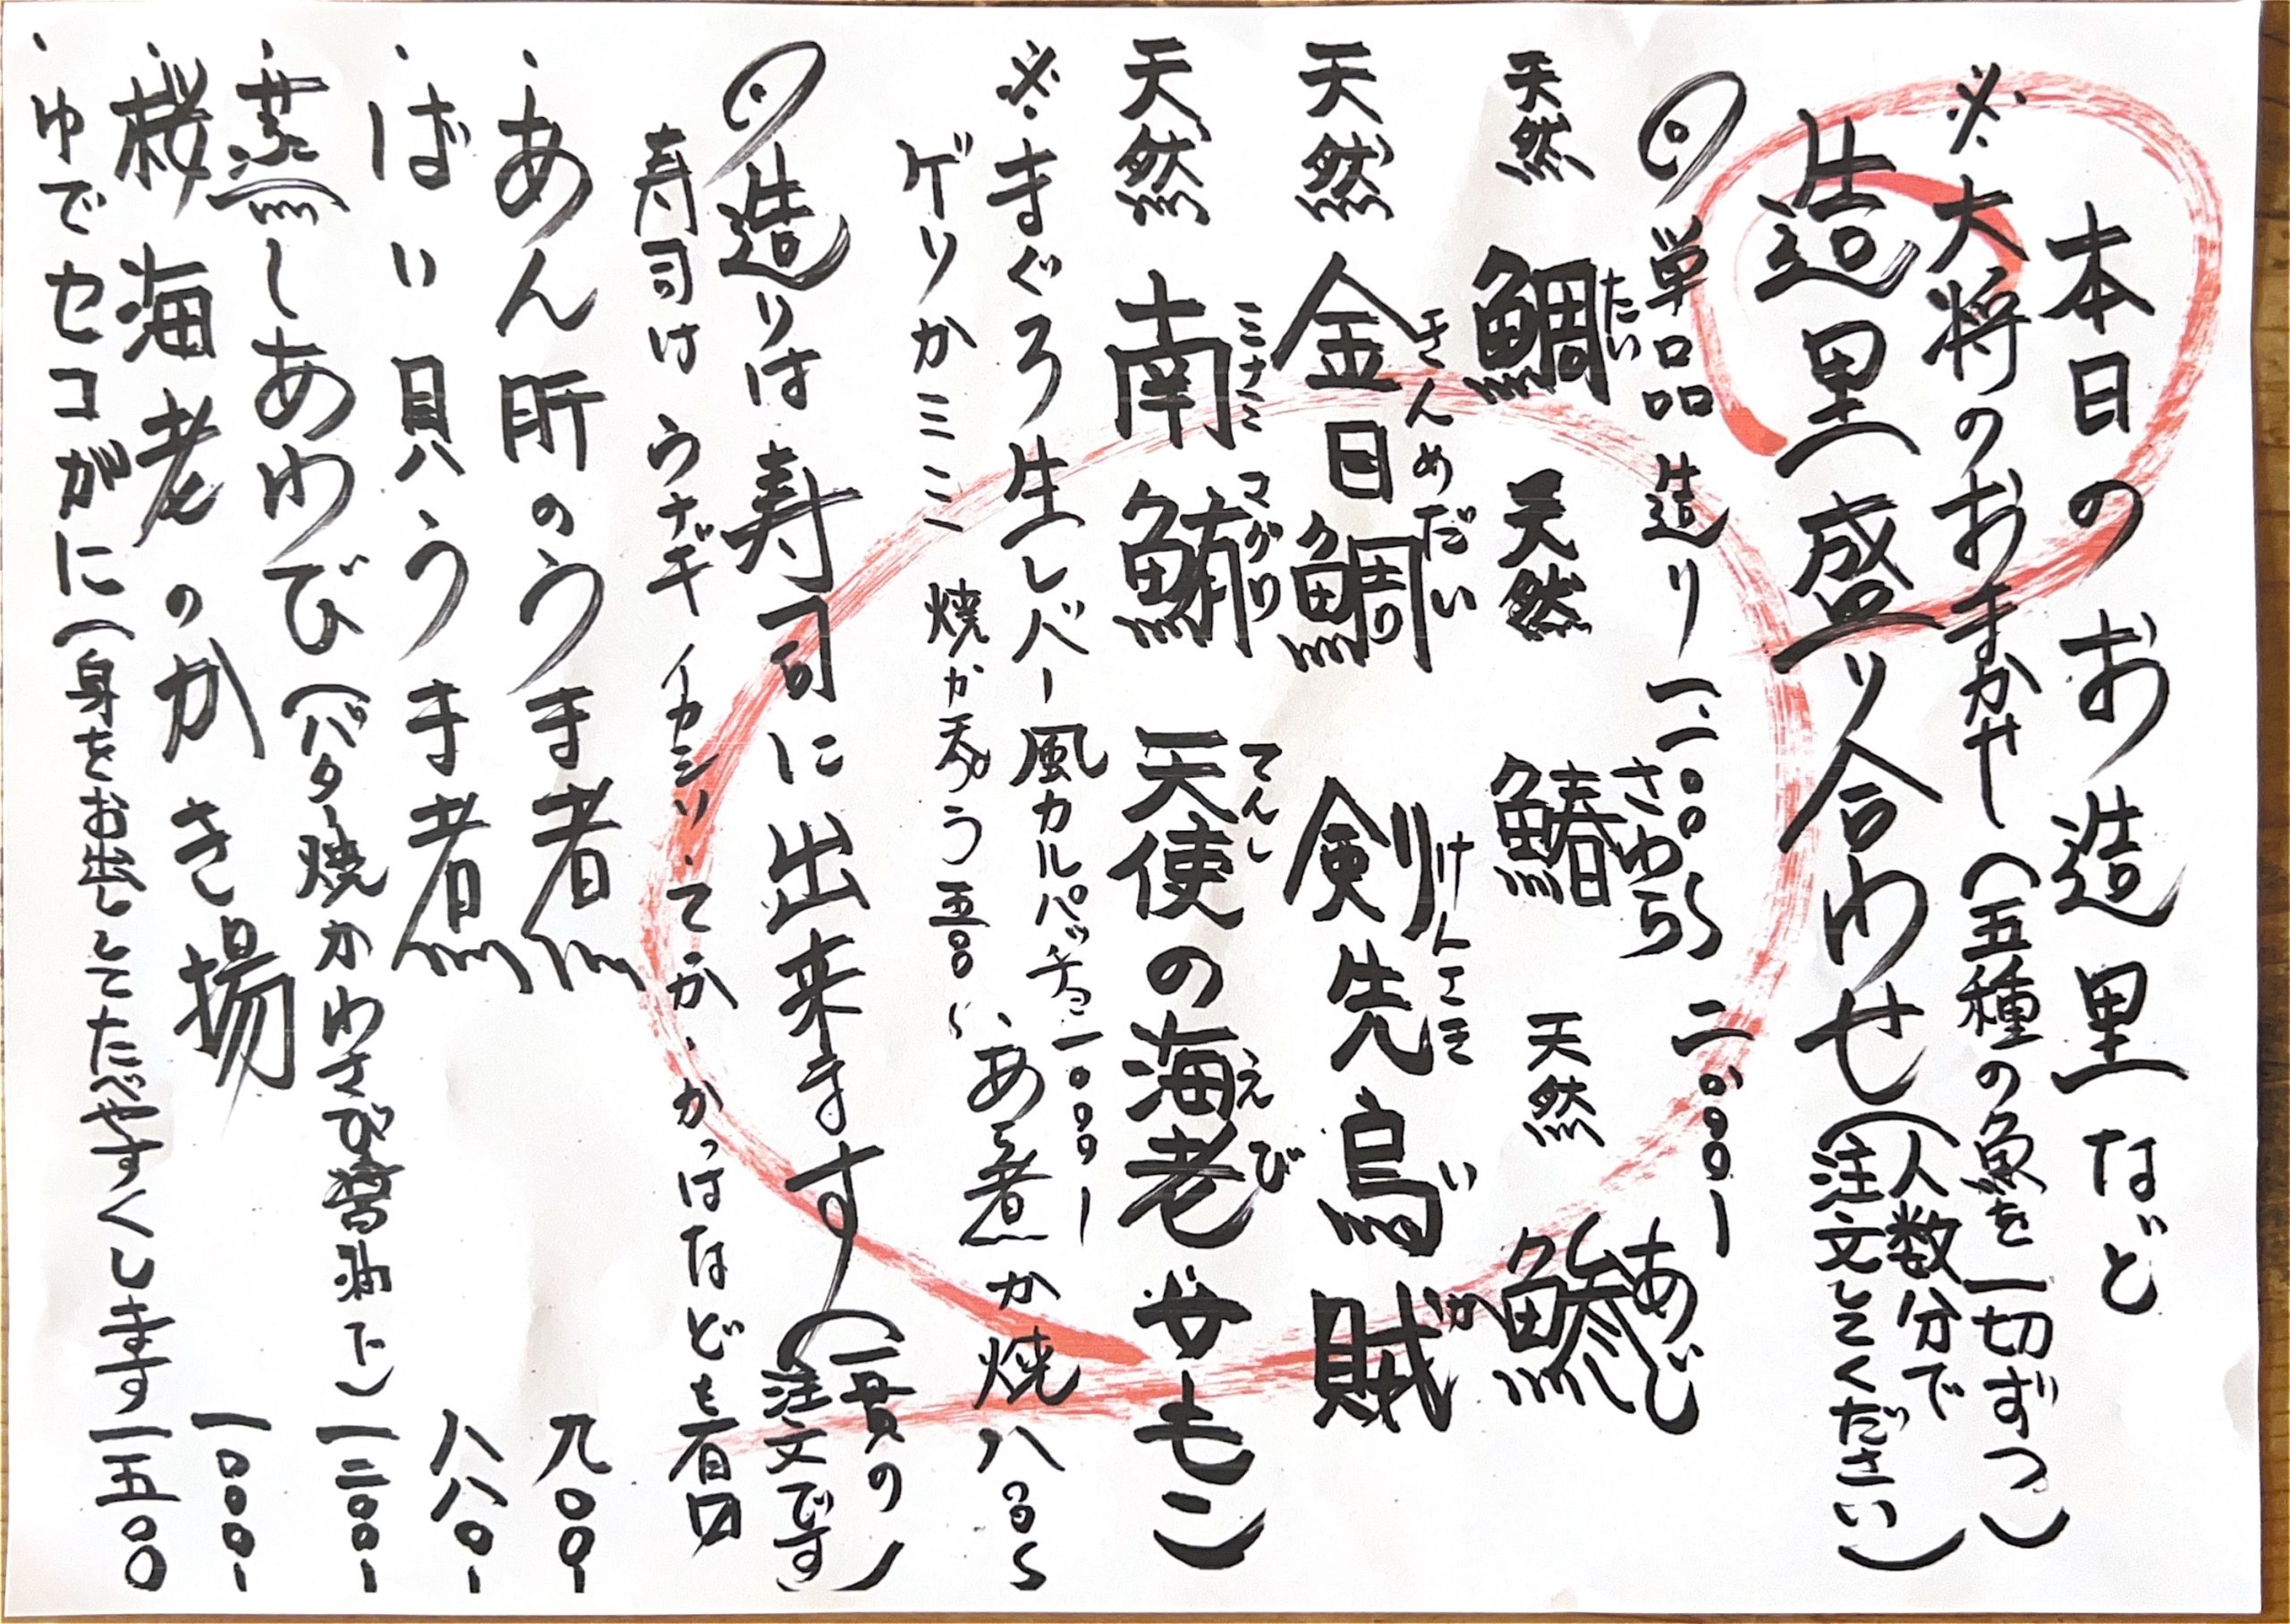 本日の お造里 など
※大将のおまかせ(五種の魚を一切ずつ)
造里盛り合わせ(人数分で注文してください)
単品造り 一二〇〇〜 二〇〇〇ー
天然 鯛 天然 鰆 天然 鯵
たい さわら あじ
天然 金目鯛 剣先烏賊
きんめだい けんさき いか
天然 南鮪 天使の海老 サーモン
ミナミマグロ てんし えび
※まぐろ生レバー風カルパッチョ一〇〇〇ー
ゲソかミミ 焼か天ぷら 五〇〇〜、あら煮か焼 八〇〇〜
造りは寿司に出来ます(一貫の注文です)
寿司は ウナギ イカシソ・てか・かっぱなども有〼
・あん肝のうま煮 九〇〇ー
・ばい貝うま煮 八八〇ー
・蒸しあわび(バター焼かわさび醤油で) 一二〇〇ー
・桜海老のかき揚 一〇〇〇ー
・ゆでセコがに(身をお出ししてたべやすくします) 一五〇〇